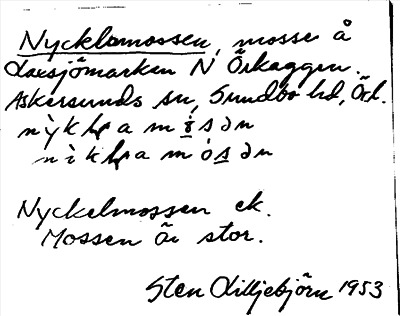 Nycklamossen, mosse å
Laxsjömarken N Örkaggen.
Askersunds sn, Sundbo hd, Örk.
nỳkḷa mǫ́sən
nìkḷa mósən
Nyckelmossen ek.
Mossen är stor.
Sten Lilljebjörn 1953